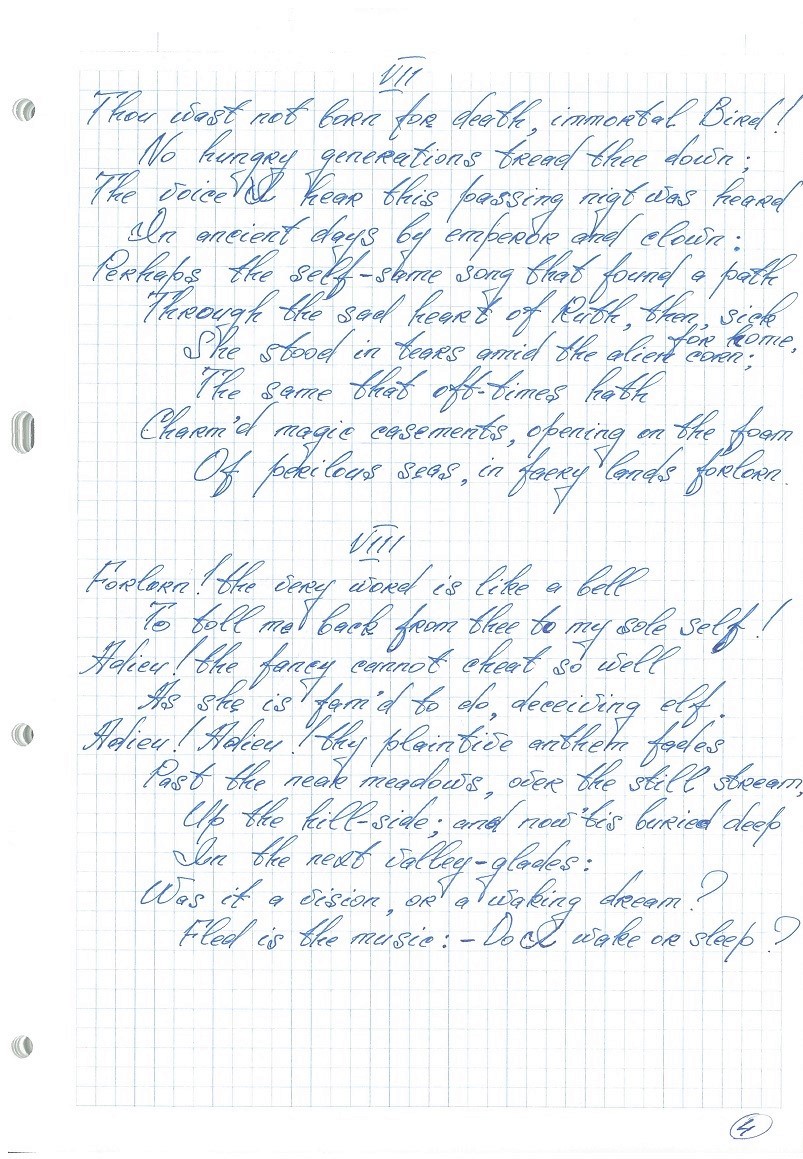 VII
Thou wast not born for death, immortal Bird!
No hungry generations tread thee down;
The voice I hear this passing nigt was heard
In ancient days by emperor and clown:
Perhaps the self-same song that found a path
Through the sad heart of Ruth, then, sick
for home,
She stood in tears amid the alien corn;
The same that oft-times hath
Charm'd magic casements, opening on the foam
Of perilous seas, in faery lands forlorn.
VIII
Forlorn! the very word is like a bell
To toll me back from thee to my sole self!
Adieu! the fancy cannot cheat so well
As she is fam'd to do, deceiving elf.
Adieu! Adieu! thy plaintive anthem fades
Past the near meadows, over the still stream,
Up the hill-side; and now 'tis buried deep
In the next valley-glades:
Was it a vision, or a waking dream?
Fled is the music: - Do I wake or sleep?
4